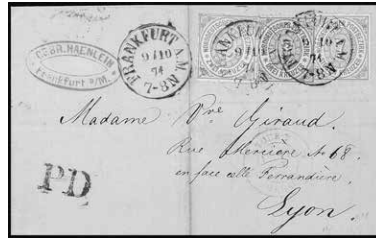 GEBR. HAENLEIN
Frankfurt a/M.
FRANKFURT A.M.
9/10
71
7-8N
FRANKFURT A.M.
9/10
71
7-8N
Madame Vve Giraud.
Rue Mercière No 68.
en face celle Ferrandière.
Lyon.
PD